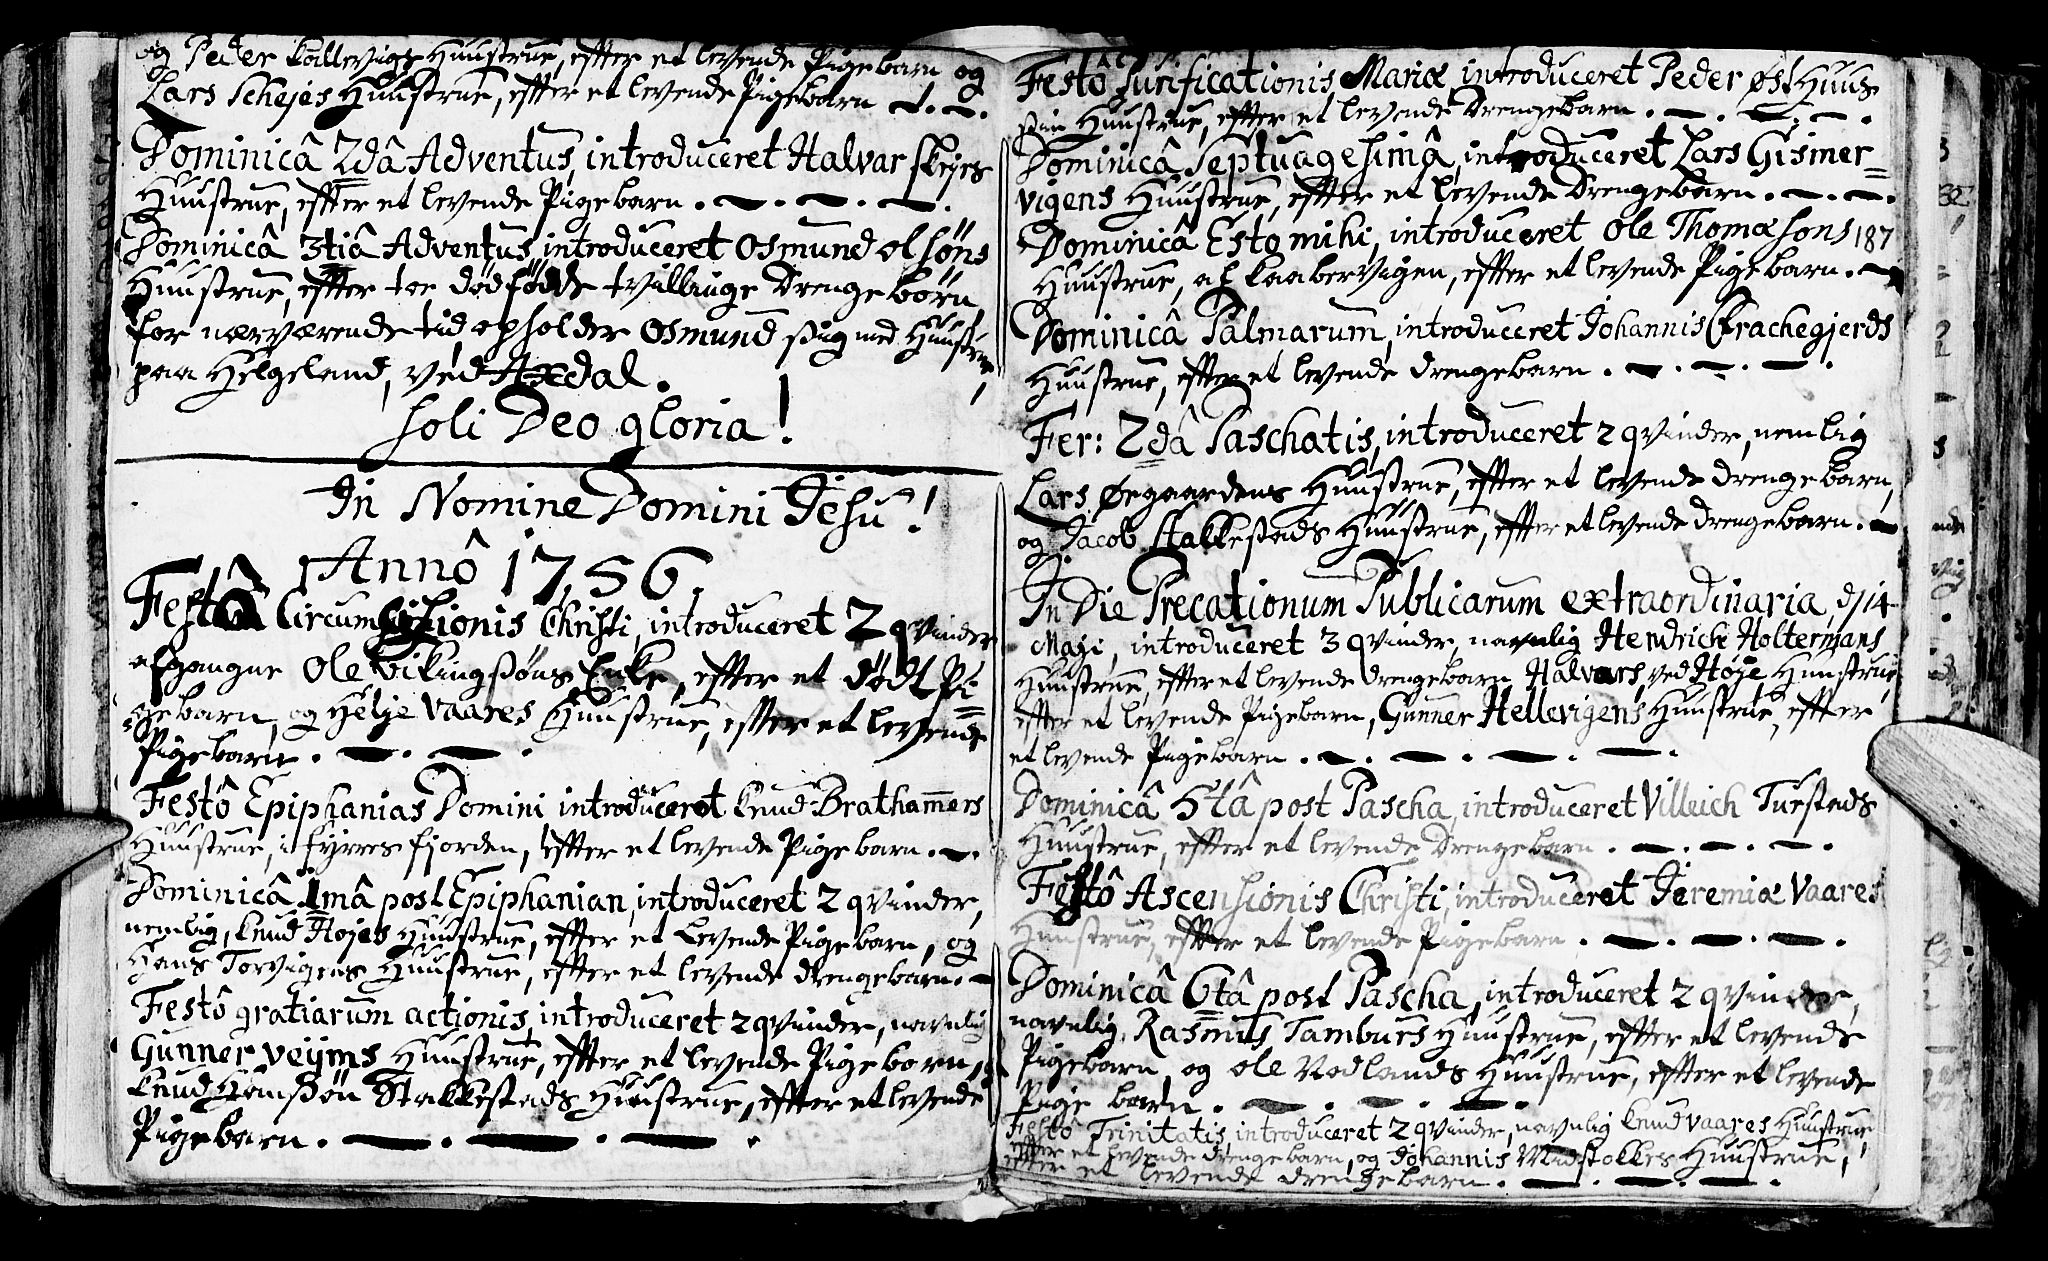 og Peder Kallevigs Huustrue, effter et levende Pigebarn og
Lars Schejes Huustrue, effter et levende Pigebarn
Dominicâ 2dâ Adventus, introduceret Halvar Skejes
Huustrue, effter et levende Pigebarn.
Dominicâ 3tiâ Adventus, introduceret Osmund olsöns
Huustrue, effter toe dödfödde tvillinge Drengebörn,
for nærværende tid opholder Osmund sig med Huustrue,
paa Helgeland, ved Axdal.
Soli Deo gloria!
In Nomine Domini Jesu!
Annô 1756.
Festô Circumcisionis Christi, introduceret 2 qvinder
afgangne Ole Vikingsöns Enke, effter et dödt Pi=
gebarn, og Helje Vaares Huustrue, effter et levende
Pigebarn.
Festô Epiphanias Domini introduceret Knud Brathamers
Huustrue, i fyrresfjorden, effter et levende Pigebarn.
Dominicâ 1mâ post Epiphanian, introduceret 2 qvinder,
nemlig, Knud Höjes Huustrue, effter et levende Pigebarn, og
Hans Torvigens Huustrue, effter et levende drengebarn.
Festô gratiarum actionis, introduceret 2 qvinder, navnlig
Gunner Veyms Huustrue, effter et levende Pigebarn, og
Knud Stakkestads Huustrue, effter et levende
Pigebarn.
Festô Purificationis Mariæ, introduceret Peder Østhuus
sin Huustrue, effter et levende Drengebarn.
Dominicâ Septuagesimâ, introduceret Lars Gismer=
vigens Huustrue, effter et levende Drengebarn.
Dominicâ Esto mihi, introduceret Ole Thomæsons 187
Huustrue, af Kaabervigen, effter et levende Pigebarn.
Dominicâ Palmarum, introduceret Johannis Krachegjerds
Huustrue, effter et levende drengebarn.
Fer: 2dâ Paschatis, introduceret 2 qvinder, nemlig
Lars Øegaardens Huustrue, effter et levende drengebarn,
og Jacob Stakkestads Huustrue, effter et levende drengebarn.
In Die Precationum Publicarum extraordinaria, d/14
Maji, introduceret 3 qvinder, navnlig Hendrich Holtermans
Huustrue, effter et levende drengebarn, Halvars, ved Höje Huustrue,
effter et levende Pigebarn, Gunner Hellevigens Huustrue, effter
et levende Pigebarn.
Dominicâ 5tâ post Pascha, introduceret Villeich Turstads
Huustrue, effter et levende Drengebarn.
Festô Ascensionis Christi, introduceret Jeremiæ Vaares
Huustrue, effter et levende Pigebarn.
Dominicâ 6tâ post Pascha, introduceret 2 qvinder,
navnlig, Rasmus Tamburs Huustrue, effter et levende
Pigebarn, og Ole Rodlands Huustrue, effter et levende
Pige barn.
Festô Trinitatis, introduceret 2 qvinder, navnlig Knud Vaares Huustrue,
effter et levende drengebarn, og Johannis Midstokkes Huustrue,
effter et levende drengebarn.